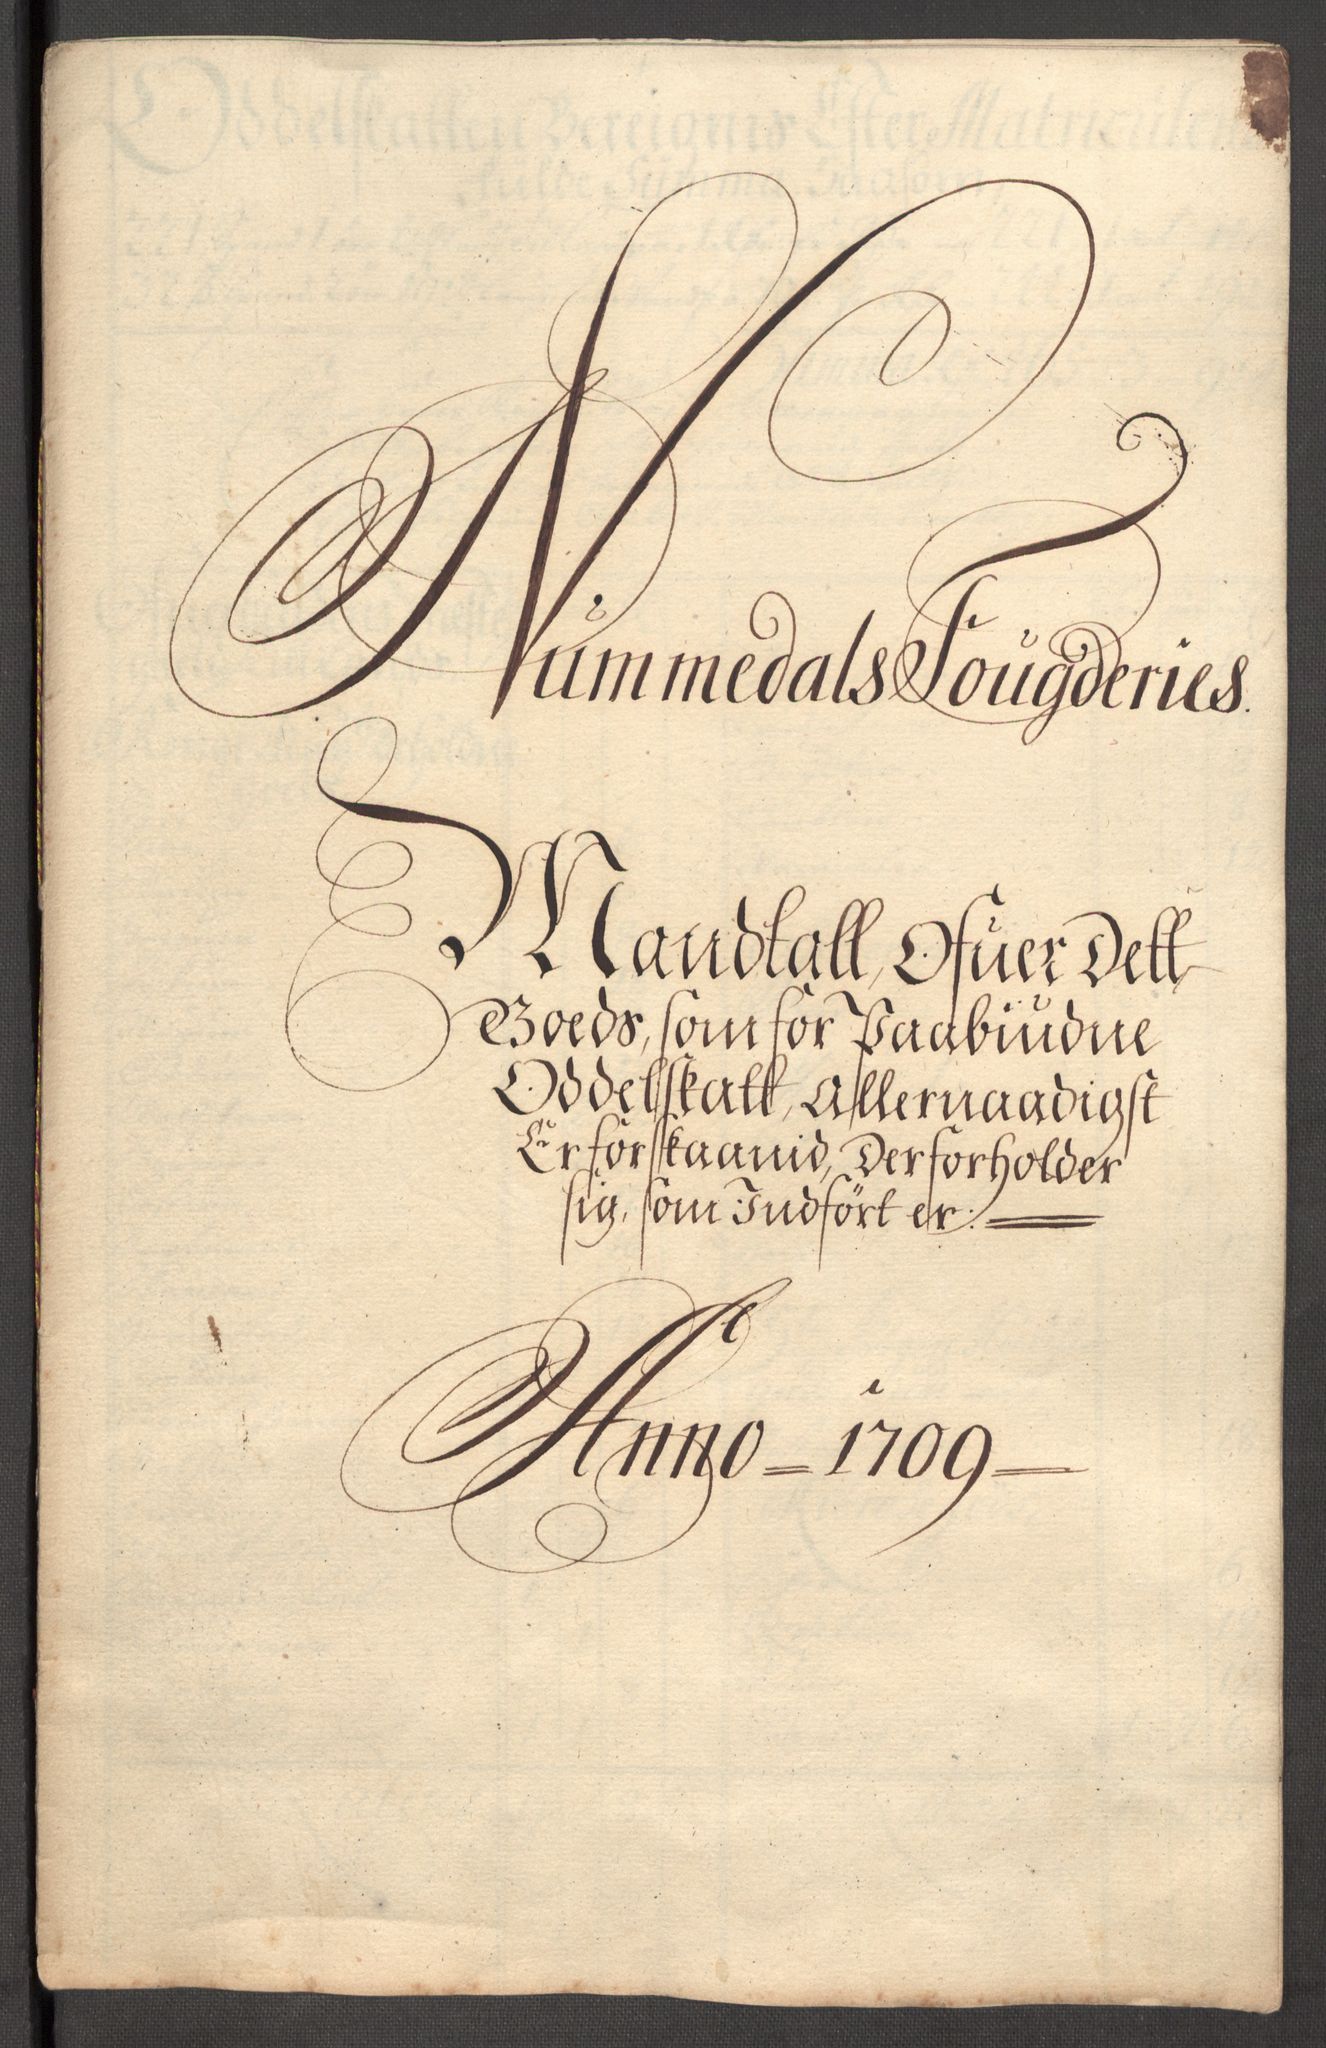 Nummedals Fougderies.
Mandtall, Ofuer Dett
Goeds, som for Paabiudne
Oddelskatt, Allernaadigst
Er forskaanid, Der forholder
sig, som Indført er:
Anno 1709